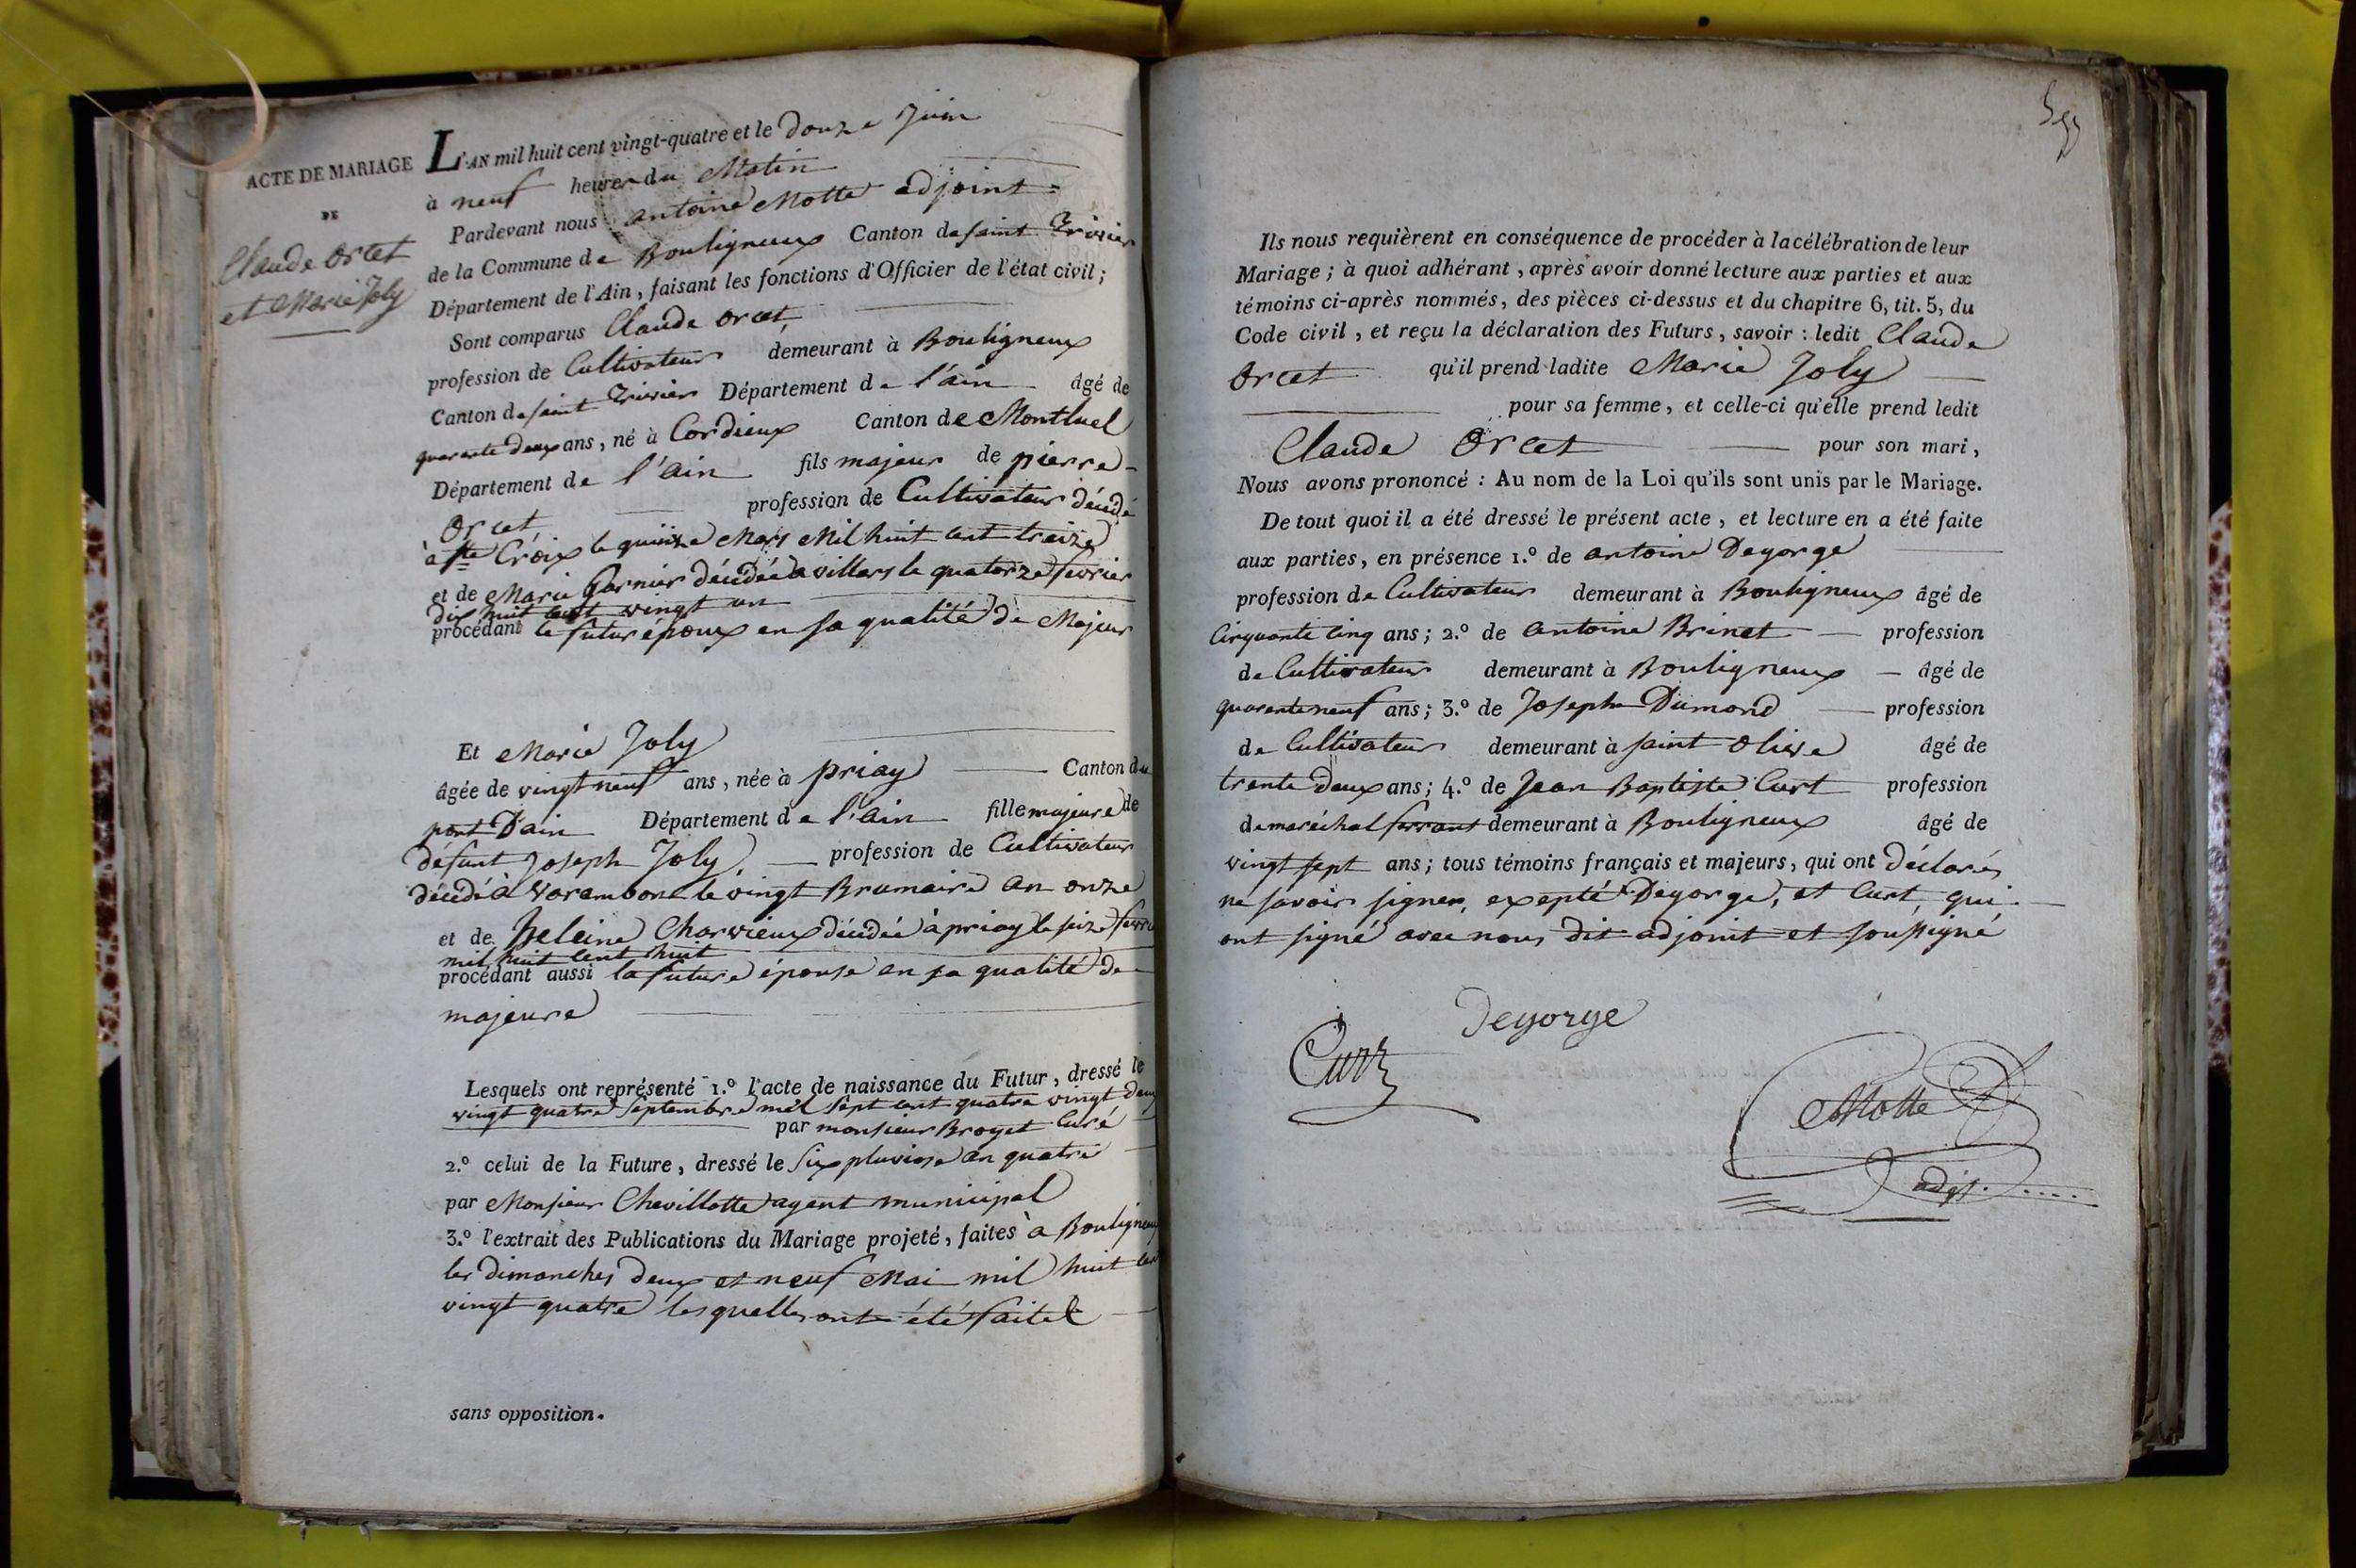 ACTE DE MARIAGE
DE
Claude Orcet
et Marie Joly
L'AN mil huit cent vingt-quatre et le Douze Juin
à neuf heures du Matin
Pardevant nous antoine Motte adjoint
de la Commune de Bouligneux Canton de saint Trivier
Département de l'Ain, faisant les fonctions d'Officier de l'état civil;
Sont comparus Claude Orcet,
profession de Cultivateur demeurant à Bouligneux
Canton de saint Trivier Département de l'ain âgé de
quarante deux ans, né à Cordieux Canton de Montluel
Département de l'ain fils majeur de pierre
Orcet profession de Cultivateur décédé
à Ste Croix le quinze Mars Mil huit cent traize
et de Marie Garnier décédée a villars le quatorze fevrier
dix huit cent vingt un
procédant le futur époux en sa qualité de Majeur
Et Marie Joly
âgée de vingt neuf ans, née à priay Canton du
pont D'ain Département de l'ain fille majeure de
défunt Joseph Joly profession de Cultivateur
décédé à Varambon le vingt Brumaire an onze
et de heleine Charvieux décédée à priay le seize
mil huit cent huit
procédant aussi la future épouse en sa qualité de
majeure
Lesquels ont représenté 1.º l'acte de naissance du Futur, dressé le
vingt quatre Septembre mil sept cent quatre vingt deux
par monsieur Broyet Curé
2.º celui de la Future, dressé le six pluviose an quatre
par Monsieur Chevillotte agent municipal
3.º l'extrait des Publications du Mariage projeté, faites à Bouligneux
les dimanches deux et neuf Mai mil huit cent
vingt quatre lesquelles ont été faites
sans opposition.
Ils nous requièrent en conséquence de procéder à la célébration de leur
Mariage; à quoi adhérant, après avoir donné lecture aux parties et aux
témoins ci-après nommés, des pièces ci-dessus et du chapitre 6, tit. 5, du
Code civil, et reçu la déclaration des Futurs, savoir: ledit Claude
Orcet qu'il prend ladite Marie Joly
pour sa femme, et celle-ci qu'elle prend ledit
Claude Orcet pour son mari,
Nous avons prononcé: Au nom de la Loi qu'ils sont unis par le Mariage.
De tout quoi il a été dressé le présent acte, et lecture en a été faite
aux parties, en présence 1.º de antoine Deyorge
profession de Cultivateur demeurant à Bouligneux âgé de
Cinquante cinq ans; 2.º de antoine Brinet profession
de Cultivateur demeurant à Bouligneux âgé de
quarante neuf ans; 3.º de Joseph Dumond profession
de Cultivateur demeurant à saint Olive âgé de
trente deux ans; 4.º de Jean Baptiste Curt profession
de maréchal ferrant demeurant à Bouligneux âgé de
vingt sept ans; tous témoins français et majeurs, qui ont déclarés
ne savoir signer, exepté Deyorge, et Curt, qui
ont signé avec nous dit adjoint et soussigné
Deyorge
Curt
Motte
adjt